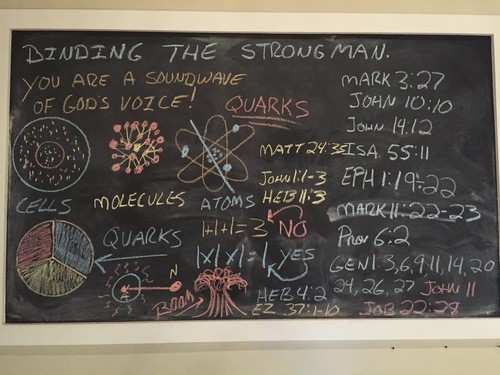 BINDING THE STRONGMAN.
YOU ARE A SOUNDWAVE
OF GOD'S VOICE!
QUARKS
CELLS
MOLECULES
ATOMS
MATT 24:35
JOHN 1:1-3
HEB 11:3
QUARKS
1+1+1=3 NO
1X1X1=1 YES
N
A
BOOM
HEB 4:2
EZ 37:1-10
MARK 3:27
JOHN 10:10
JOHN 14:12
ISA 55:11
EPH 1:19-22
MARK 11:22-23
PROV 6:2
GEN 1:3,6,9,11,14,20
24,26,27 JOHN 11
JOB 22:28